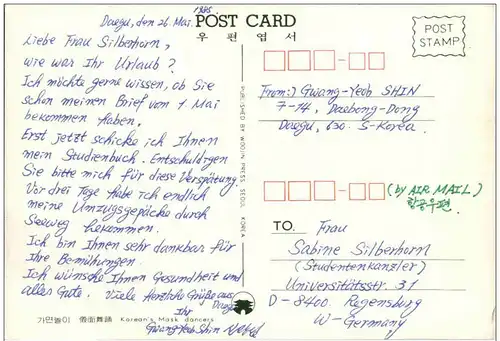 Daegu, den 26. Mai. 1985
POST CARD
우 편 엽 서
POST
STAMP
Liebe Frau Silberhorn,
wie war Ihr Urlaub?
Ich möchte gerne wissen, ob Sie
schon meinen Brief vom 1 Mai
bekommen haben.
Erst jetzt schicke ich Ihnen
mein Studienbuch. Entschuldigen
Sie bitte mich für diese Verspätung.
Vor drei Tage habe ich endlich
meine Umzugsgepäcke durch
Seeweg bekommen.
Ich bin Ihnen sehr dankbar für
Ihre Bemühungen.
Ich wünsche Ihnen Gesundheit und
alles Gute. Viele herzliche Grüße aus
Daegu
Ihr
Gwang-Yeob Shin
가면놀이 假面舞踊 Korean's Mask dancers
PUBLISHED BY WOOJIN PRESS SEOUL KOREA
From:) Gwang-Yeob SHIN
7-14, Daebong-Dong
Daegu, 630. S-Korea.
(by AIR MAIL)
항공우편.
TO. Frau
Sabine Silberhorn
(Studentenkanzler)
Universitätsstr. 31
D-8400 Regensburg
W-Germany